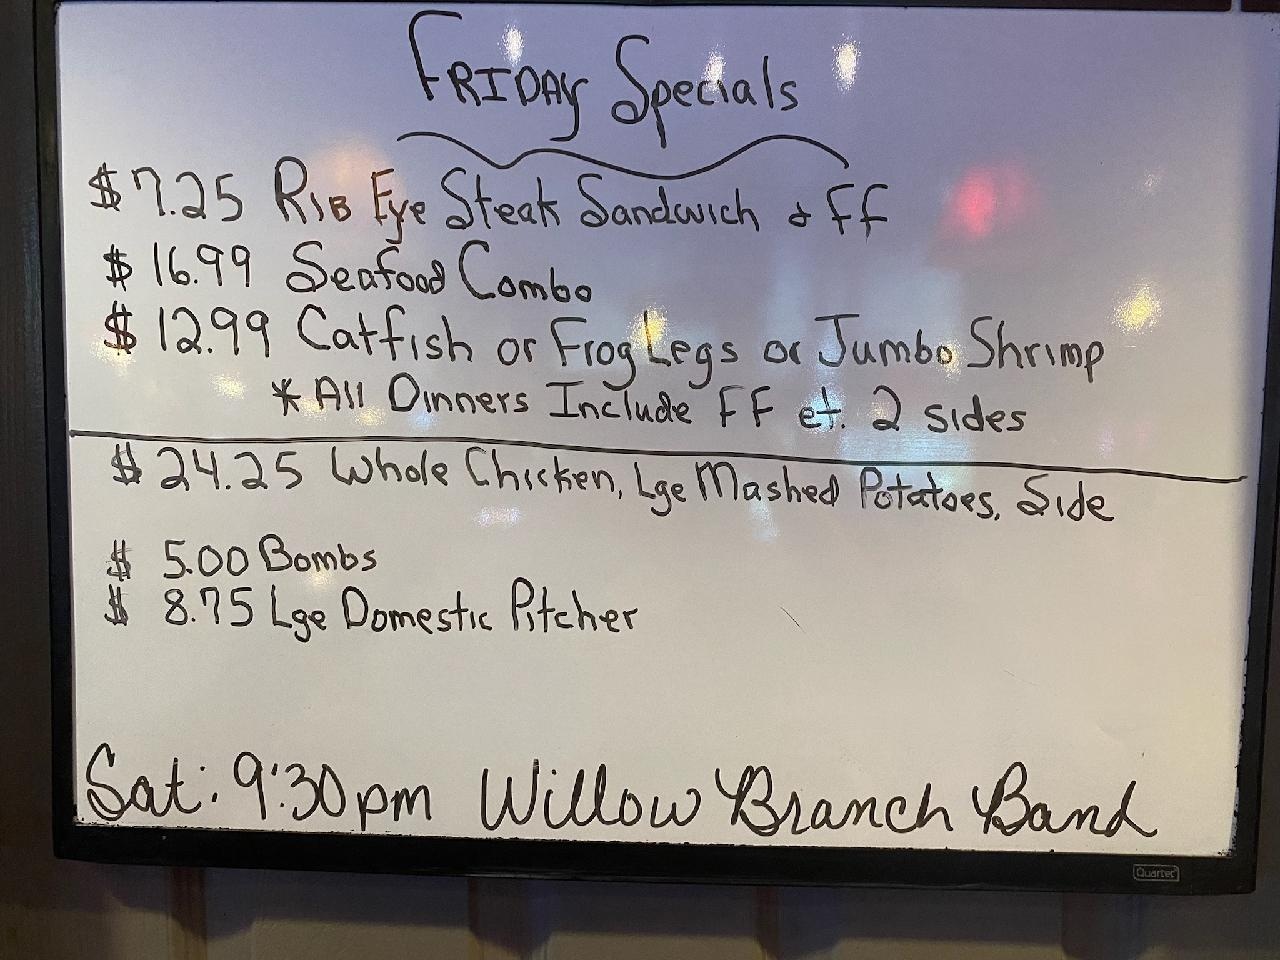 FRIDAY Specials
$ 7.25 RIB Eye Steak Sandwich & FF
$ 16.99 Seafood Combo
$ 12.99 Catfish or Frog Legs or Jumbo Shrimp
* All Dinners Include FF et. 2 sides
$ 24.25 Whole Chicken, Lge Mashed Potatoes, Side
$ 5.00 Bombs
$ 8.75 Lge Domestic Pitcher
Sat: 9:30pm Willow Branch Band
Quartet